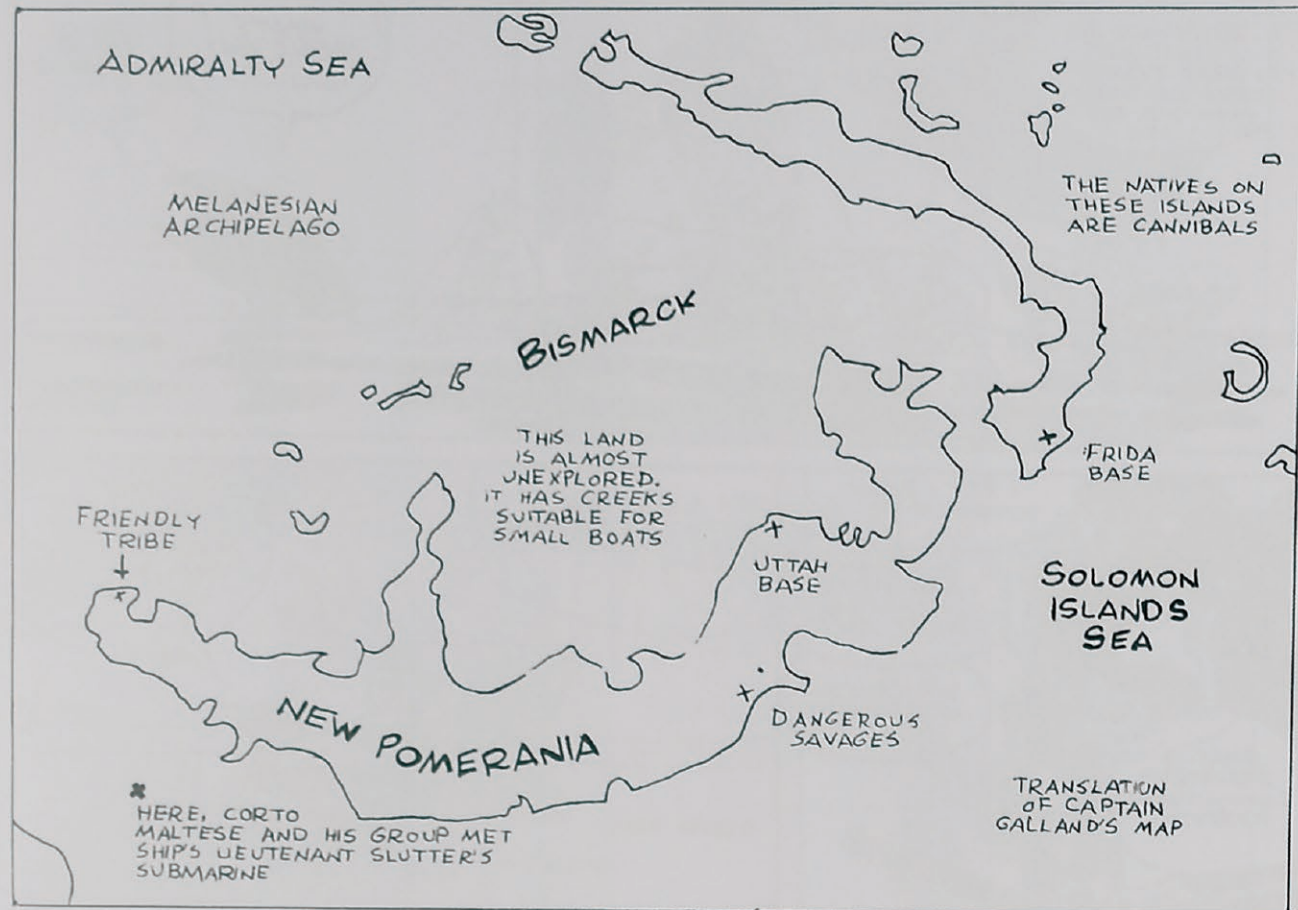 ADMIRALTY SEA
MELANESIAN
ARCHIPELAGO
THE NATIVES ON
THESE ISLANDS
ARE CANNIBALS
BISMARCK
THIS LAND
IS ALMOST
UNEXPLORED.
IT HAS CREEKS
SUITABLE FOR
SMALL BOATS
FRIDA
BASE
FRIENDLY
TRIBE
UTTAH
BASE
SOLOMON
ISLANDS
SEA
NEW POMERANIA
DANGEROUS
SAVAGES
HERE, CORTO
MALTESE AND HIS GROUP MET
SHIP'S LIEUTENANT SLUTTER'S
SUBMARINE
TRANSLATION
OF CAPTAIN
GALLAND'S MAP